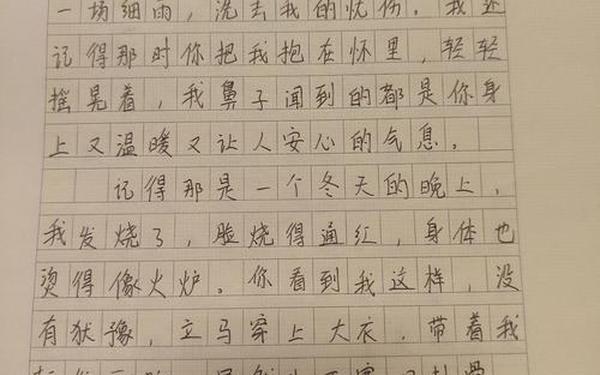 一场细雨，洗去我的忧伤。我还
记得那时你把我抱在怀里，轻轻
摇晃着，我鼻子闻到的都是你身
上又温暖又让人安心的气息。
记得那是一个冬天的晚上，
我发烧了，脸烧得通红，身体也
烫得像火炉。你看到我这样，没
有犹豫，立马穿上大衣，带着我